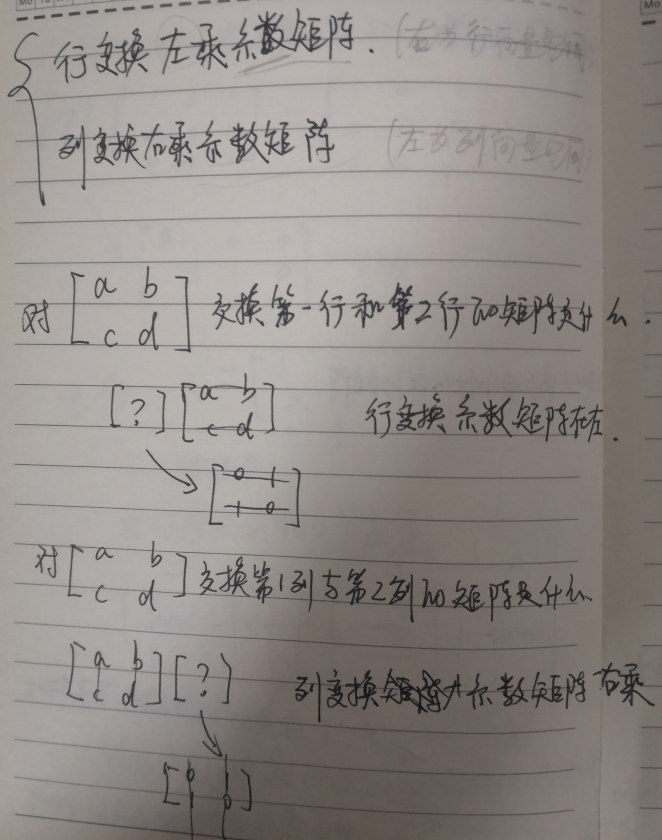 行变换左乘系数矩阵.(右为行向量空间)
列变换右乘系数矩阵 (左为列向量空间)
对 [a b
c d] 交换第一行和第2行的矩阵是什么.
[?] [a b
c d] 行变换系数矩阵在左.
[0 1
1 0]
对 [a b
c d] 交换第1列与第2列的矩阵是什么
[a b
c d] [?] 列变换 系数矩阵右乘
[0 1
1 0]